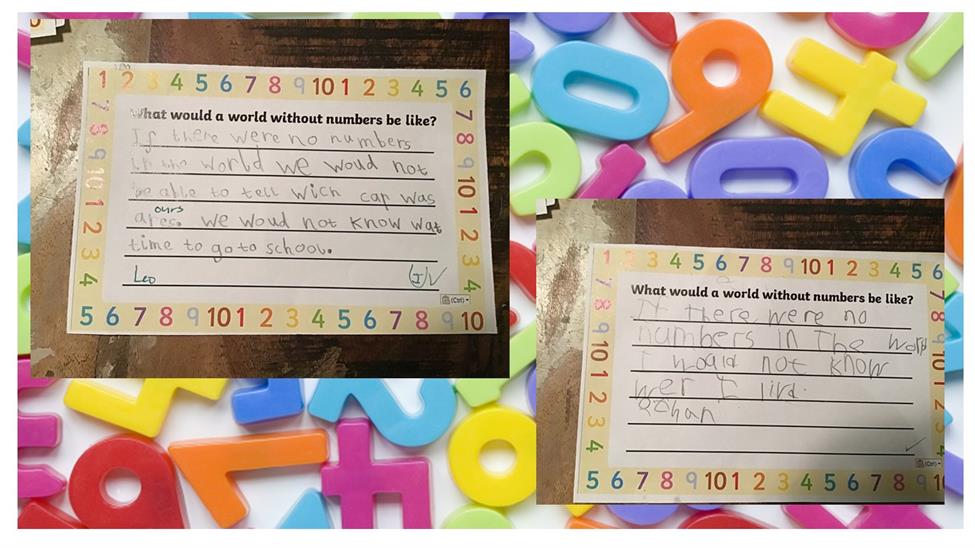 1 2 3 4 5 6 7 8 9 10 1 2 3 4 5 6
What would a world without numbers be like?
If there were no numbers
in the world we woud not
be able to tell wich cap was
ours
ares. we woud not know wat
time to go to school.
Leo
(Ctrl)
5 6 7 8 9 10 1 2 3 4 5 6 7 8 9 10
1 3 4 5 6 7 8 9 10 1 2 3 4 5 6
What would a world without numbers be like?
If there were no
numbers in the world
I would not know
wer I livd.
(Ctrl)
5 6 7 8 9 10 1 2 3 4 5 6 7 8 9 10